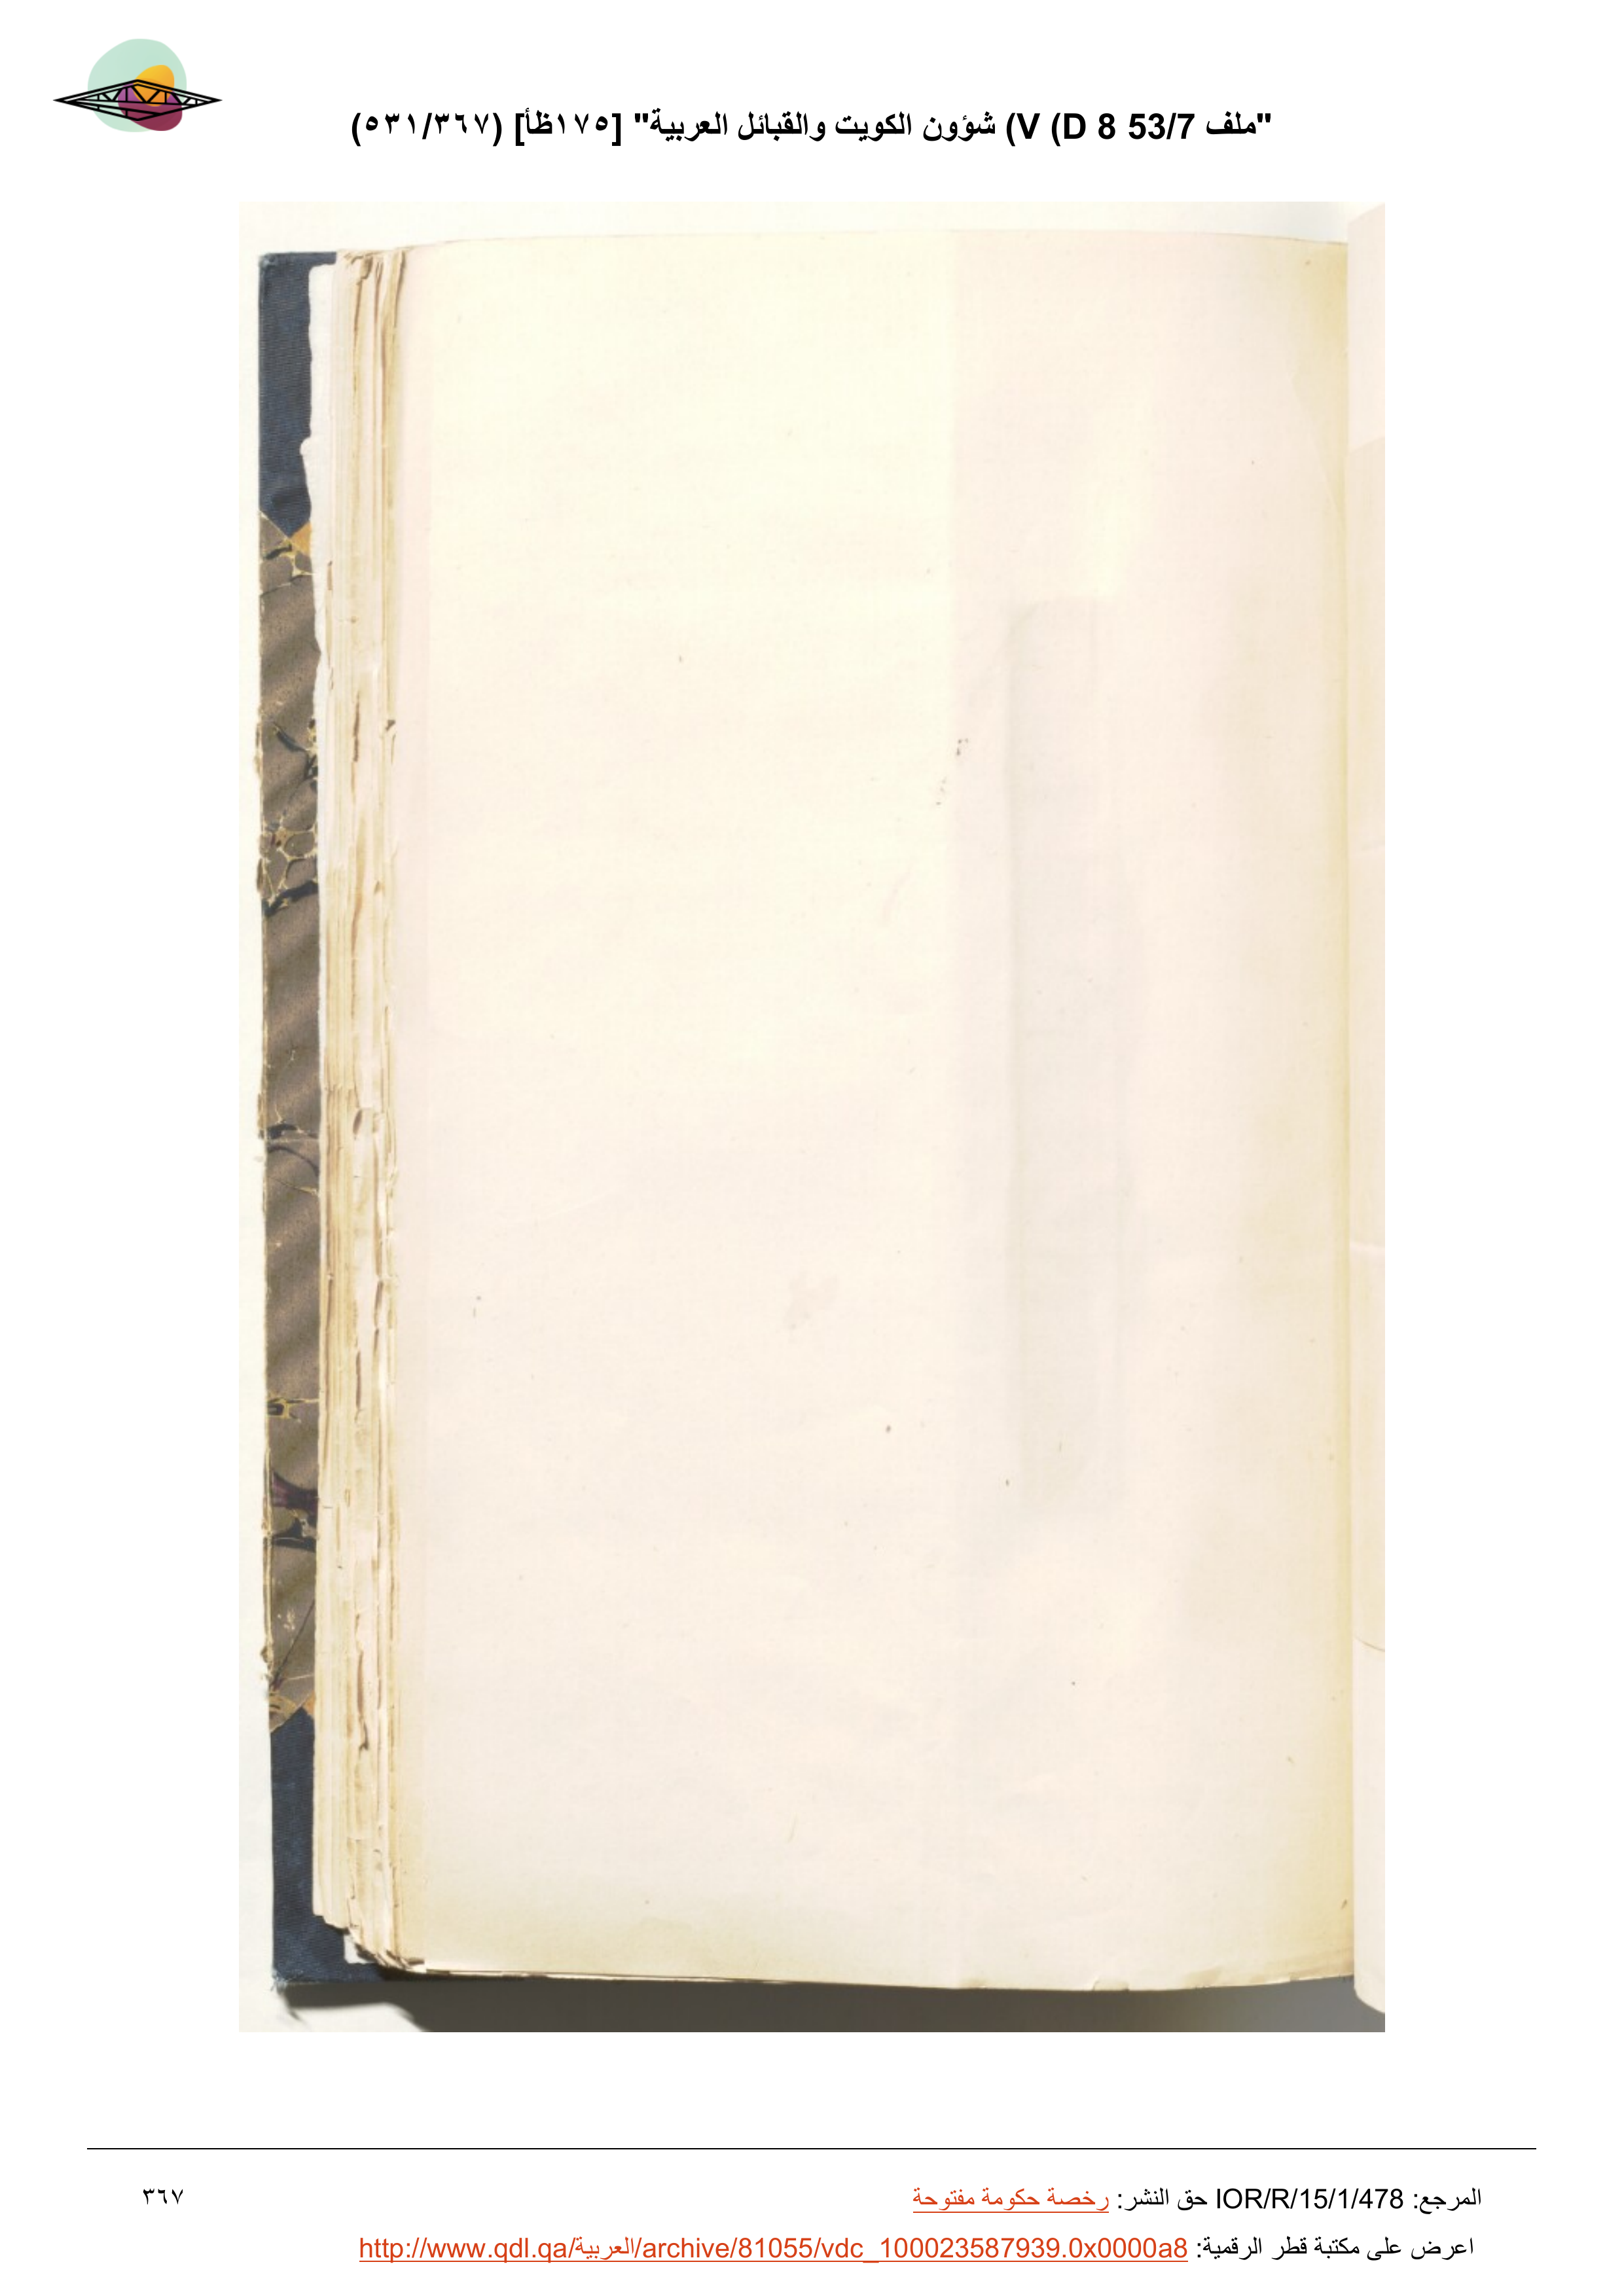 "ملف 53/7 D 8) V) شؤون الكويت والقبائل العربية" [١٧٥ظأ] (٥٣١/٣٦٧)
المرجع: IOR/R/15/1/478 حق النشر: رخصة حكومة مفتوحة
٣٦٧
اعرض على مكتبة قطر الرقمية: http://www.qdl.qa/العربية/archive/81055/vdc_100023587939.0x0000a8